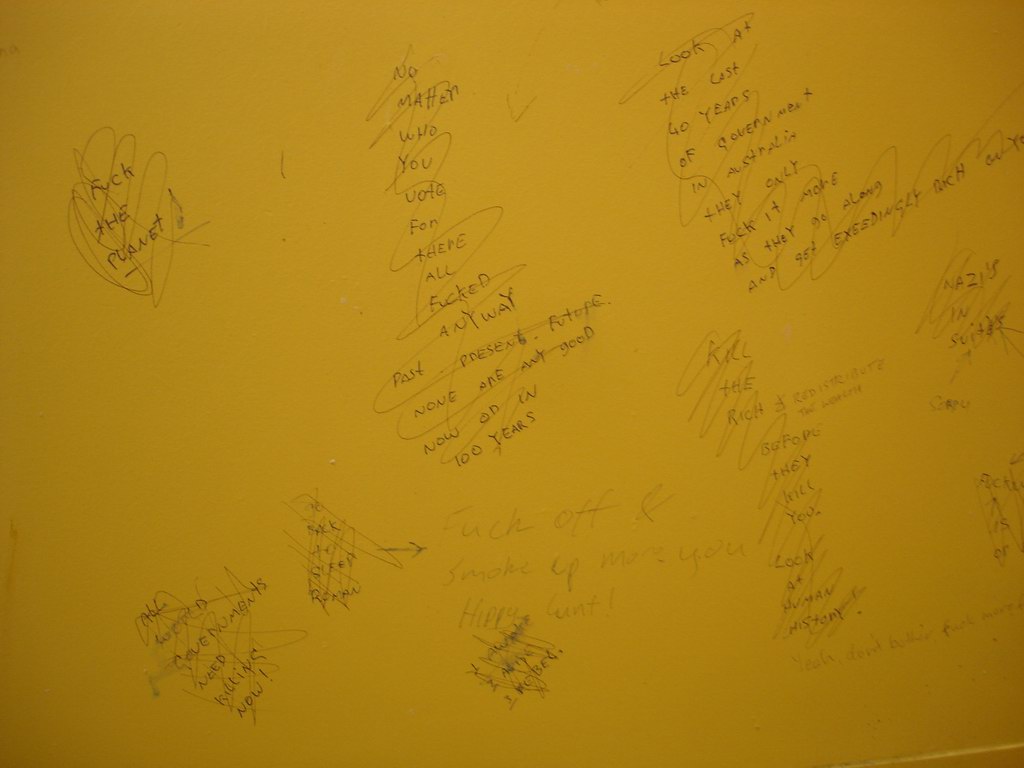 FUCK
THE
PLANET!
NO
MATTER
WHO
YOU
VOTE
FOR
THERE
ALL
FUCKED
ANYWAY
PAST PRESENT. FUTURE.
NONE ARE ANY GOOD
NOW OR IN
100 YEARS
LOOK At
THE LAST
40 YEARS
OF GOVERNMENT
IN AUSTRALIA
THEY ONLY
FUCK IT MORE
AS THEY GO ALONG
AND GET EXEEDINGLY RICH
NAZI'S
IN
SUITS
KILL
THE
RICH & REDISTRIBUTE
THE WEALTH
BEFORE
THEY
KILL
YOU.
LOOK
At
HUMAN
HISTORY.
GO
BACK
TO
SLEEP
Fuck off &
Smoke up more you
Hippy Cunt!
WORLD
GOVERNMENTS
NEED
KILLING
NOW!
IS
OF
Yeah don't bother fuck more